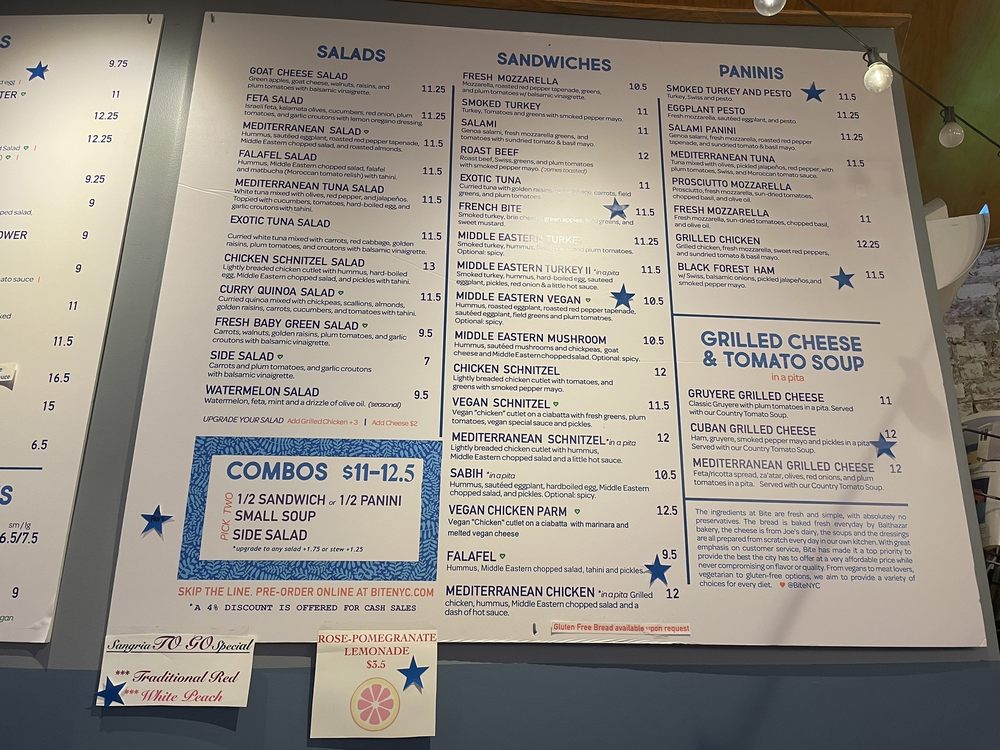 S
9.75
ed egg |
TER
11
12.25
12.25
Salad
9.25
9
ped salad,
OWER
9
9
ato sauce |
11
ked
11.5
16.5
sauce
15
6.5
S
sm/lg
6.5/7.5
9
gan
SALADS
GOAT CHEESE SALAD
Green apples, goat cheese, walnuts, raisins, and
plum tomatoes with balsamic vinaigrette.
11.25
FETA SALAD
Israeli feta, kalamata olives, cucumbers, red onion, plum
tomatoes, and garlic croutons with lemon oregano dressing.
11.25
MEDITERRANEAN SALAD
Hummus, sautéed eggplant, roasted red pepper tapenade,
Middle Eastern chopped salad, and roasted almonds.
11.5
FALAFEL SALAD
Hummus, Middle Eastern chopped salad, falafel
and matbucha (Moroccan tomato relish) with tahini.
11.5
MEDITERRANEAN TUNA SALAD
White tuna mixed with olives, red pepper, and jalapeños.
Topped with cucumbers, tomatoes, hard-boiled egg, and
garlic croutons with tahini.
11.5
EXOTIC TUNA SALAD
Curried white tuna mixed with carrots, red cabbage, golden
raisins, plum tomatoes, and croutons with balsamic vinaigrette.
11.5
CHICKEN SCHNITZEL SALAD
Lightly breaded chicken cutlet with hummus, hard-boiled
egg, Middle Eastern chopped salad, and pickles with tahini.
13
CURRY QUINOA SALAD
Curried quinoa mixed with chickpeas, scallions, almonds,
golden raisins, carrots, cucumbers, and tomatoes with tahini.
11.5
FRESH BABY GREEN SALAD
Carrots, walnuts, golden raisins, plum tomatoes, and garlic
croutons with balsamic vinaigrette.
9.5
SIDE SALAD
Carrots and plum tomatoes, and garlic croutons
with balsamic vinaigrette.
7
WATERMELON SALAD
Watermelon, feta, mint and a drizzle of olive oil. (seasonal)
9.5
UPGRADE YOUR SALAD Add Grilled Chicken +3 | Add Cheese $2
COMBOS $11-12.5
PICK TWO
1/2 SANDWICH or 1/2 PANINI
SMALL SOUP
SIDE SALAD
*upgrade to any salad +1.75 or stew +1.25
SKIP THE LINE. PRE-ORDER ONLINE AT BITENYC.COM
*A 4% DISCOUNT IS OFFERED FOR CASH SALES
SANDWICHES
FRESH MOZZARELLA
Mozzarella, roasted red pepper tapenade, greens,
and plum tomatoes w/ balsamic vinaigrette.
10.5
SMOKED TURKEY
Turkey, Tomatoes and greens with smoked pepper mayo.
11
SALAMI
Genoa salami, fresh mozzarella, greens, and
tomatoes with sundried tomato & basil mayo.
11
ROAST BEEF
Roast beef, Swiss, greens, and plum tomatoes
with smoked pepper mayo. (comes toasted)
12
EXOTIC TUNA
Curried tuna with golden raisins, carrots, field
greens, and plum tomatoes
11
FRENCH BITE
Smoked turkey, brie cheese, green apples, field greens, and
sweet mustard.
11.5
MIDDLE EASTERN TURKEY
Smoked turkey, hummus, plum tomatoes.
Optional: spicy.
11.25
MIDDLE EASTERN TURKEY II *in a pita
Smoked turkey, hummus, hard-boiled egg, sautéed
eggplant, pickles, red onion & a little hot sauce.
11.5
MIDDLE EASTERN VEGAN
Hummus, roasted eggplant, roasted red pepper tapenade,
sautéed eggplant, field greens and plum tomatoes.
Optional: spicy.
10.5
MIDDLE EASTERN MUSHROOM
Hummus, sautéed mushrooms and chickpeas, goat
cheese and Middle Eastern chopped salad. Optional: spicy.
10.5
CHICKEN SCHNITZEL
Lightly breaded chicken cutlet with tomatoes, and
greens with smoked pepper mayo.
12
VEGAN SCHNITZEL
Vegan "chicken" cutlet on a ciabatta with fresh greens, plum
tomatoes, vegan special sauce and pickles.
11.5
MEDITERRANEAN SCHNITZEL *in a pita
Lightly breaded chicken cutlet with hummus,
Middle Eastern chopped salad & a little hot sauce.
12
SABIH *in a pita
Hummus, sautéed eggplant, hardboiled egg, Middle Eastern
chopped salad, and pickles. Optional: spicy.
10.5
VEGAN CHICKEN PARM
Vegan "Chicken" cutlet on a ciabatta with marinara and
melted vegan cheese
12.5
FALAFEL
Hummus, Middle Eastern chopped salad, tahini and pickles.
9.5
MEDITERRANEAN CHICKEN *in a pita Grilled
chicken, hummus, Middle Eastern chopped salad and a
dash of hot sauce.
12
Gluten Free Bread available upon request
PANINIS
SMOKED TURKEY AND PESTO
Turkey, Swiss and pesto.
11.5
EGGPLANT PESTO
Fresh mozzarella, sautéed eggplant, and pesto.
11.25
SALAMI PANINI
Genoa salami, fresh mozzarella, roasted red pepper
tapenade, and sundried tomato & basil mayo.
11.25
MEDITERRANEAN TUNA
Tuna mixed with olives, pickled jalapeños, red pepper, with
plum tomatoes, Swiss, and Moroccan tomato sauce.
11.5
PROSCIUTTO MOZZARELLA
Prosciutto, fresh mozzarella, sun-dried tomatoes,
chopped basil, and olive oil.
FRESH MOZZARELLA
Fresh mozzarella, sun-dried tomatoes, chopped basil,
and olive oil.
11
GRILLED CHICKEN
Grilled chicken, fresh mozzarella, sweet red peppers,
and sundried tomato & basil mayo.
12.25
BLACK FOREST HAM
w/ Swiss, balsamic onions, pickled jalapeños, and
smoked pepper mayo.
11.5
GRILLED CHEESE
& TOMATO SOUP
in a pita
GRUYERE GRILLED CHEESE
Classic Gruyere with plum tomatoes in a pita. Served
with our Country Tomato Soup.
11
CUBAN GRILLED CHEESE
Ham, gruyere, smoked pepper mayo and pickles in a pita
Served with our Country Tomato Soup.
12
MEDITERRANEAN GRILLED CHEESE
Feta/ricotta spread, za'atar, olives, red onions, and plum
tomatoes in a pita. Served with our Country Tomato Soup.
12
The ingredients at Bite are fresh and simple, with absolutely no
preservatives. The bread is baked fresh everyday by Balthazar
bakery, the cheese is from Joe's dairy, the soups and the dressings
are all prepared from scratch every day in our own kitchen. With great
emphasis on customer service, Bite has made it a top priority to
provide the best the city has to offer at a very affordable price while
never compromising on flavor or quality. From vegans to meat lovers,
vegetarian to gluten-free options, we aim to provide a variety of
choices for every diet. @BiteNYC
Sangria TO GO Special
*** Traditional Red
*** White Peach
ROSE-POMEGRANATE
LEMONADE
$3.5